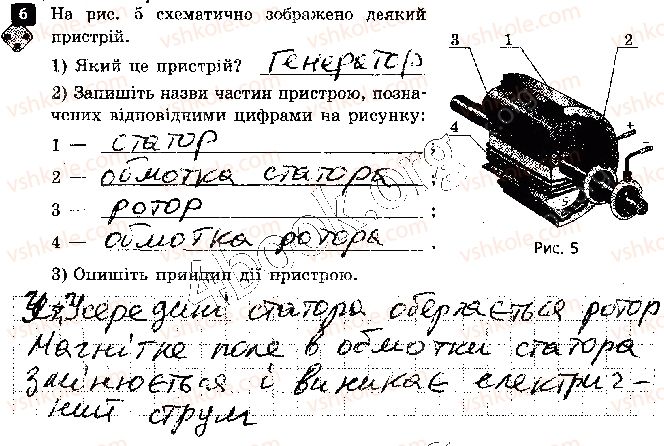 6 На рис. 5 схематично зображено деякий
пристрій.
1) Який це пристрій? Генератор
2) Запишіть назви частин пристрою, позна-
чених відповідними цифрами на рисунку:
1 — статор ;
2 — обмотка статора ;
3 — ротор ;
4 — обмотка ротора .
3) Опишіть принцип дії пристрою.
3 1 2
4 + −
S
Рис. 5
Усередині статора обертається ротор
Магнітне поле в обмотки статора
Змінюється і виникає електрич-
ний струм
vshkole.com
4book.org